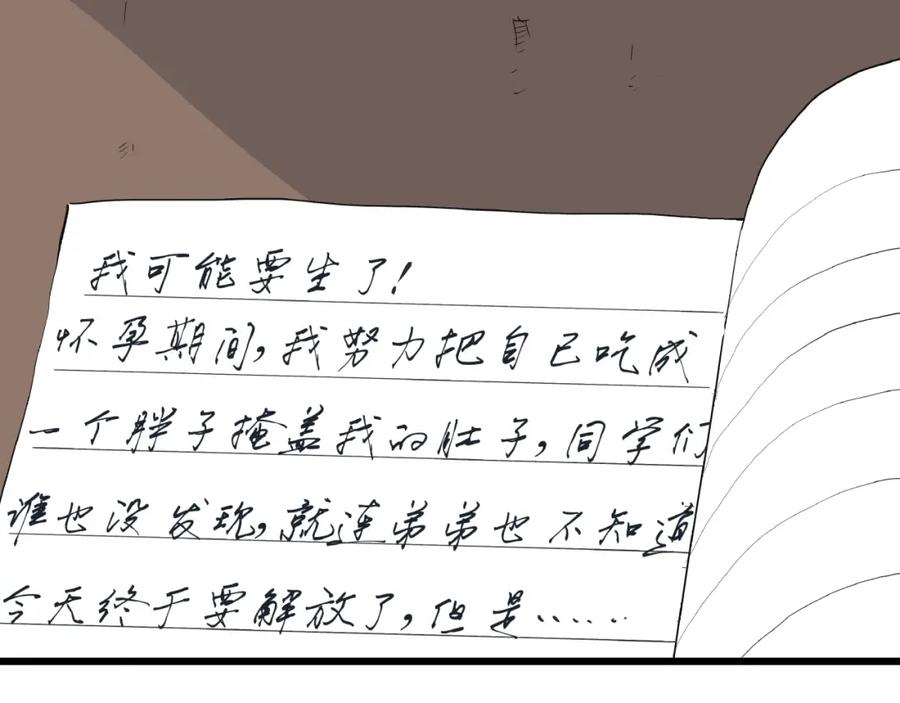 我可能要生了!
怀孕期间,我努力把自己吃成
一个胖子掩盖我的肚子,同学们
谁也没发现,就连弟弟也不知道
今天终于要解放了,但是……